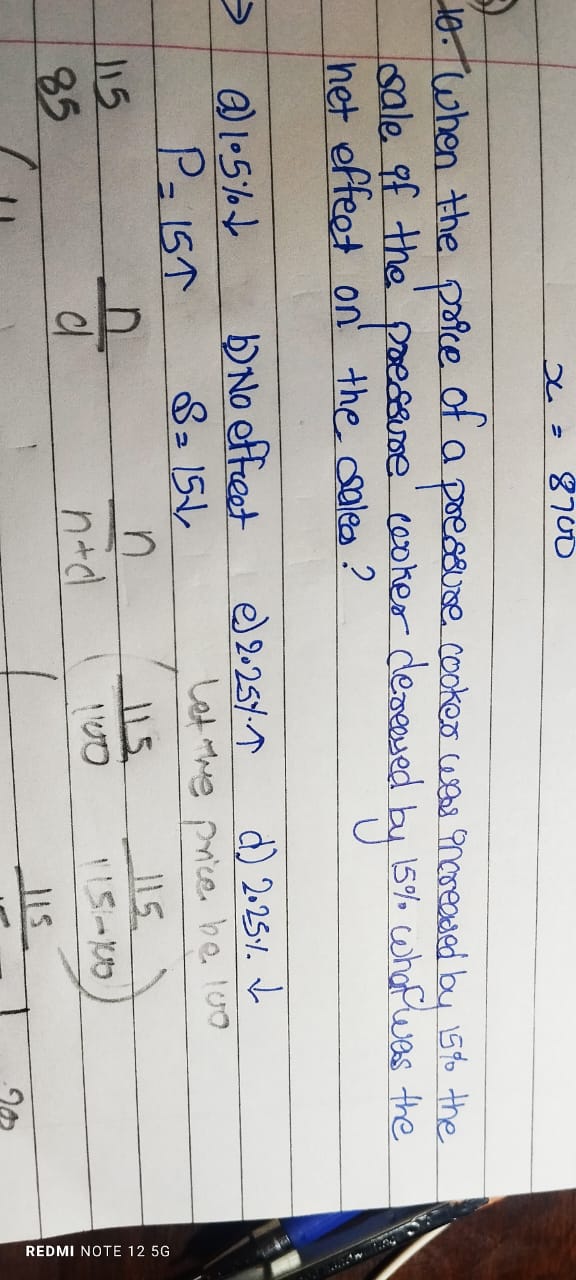 x = 8700
10. When the price of a pressure cooker was increased by 15% the
sale of the pressure cooker decreased by 15% what was the
net effect on the sales?
→ a) 1.5% ↓ b) No effect c) 2.25% ↑ d) 2.25% ↓
P = 15 ↑ S = 15 ↓ Let the price be 100
115 n n 115 115
85 d n+d 100 115-100
115
REDMI NOTE 12 5G